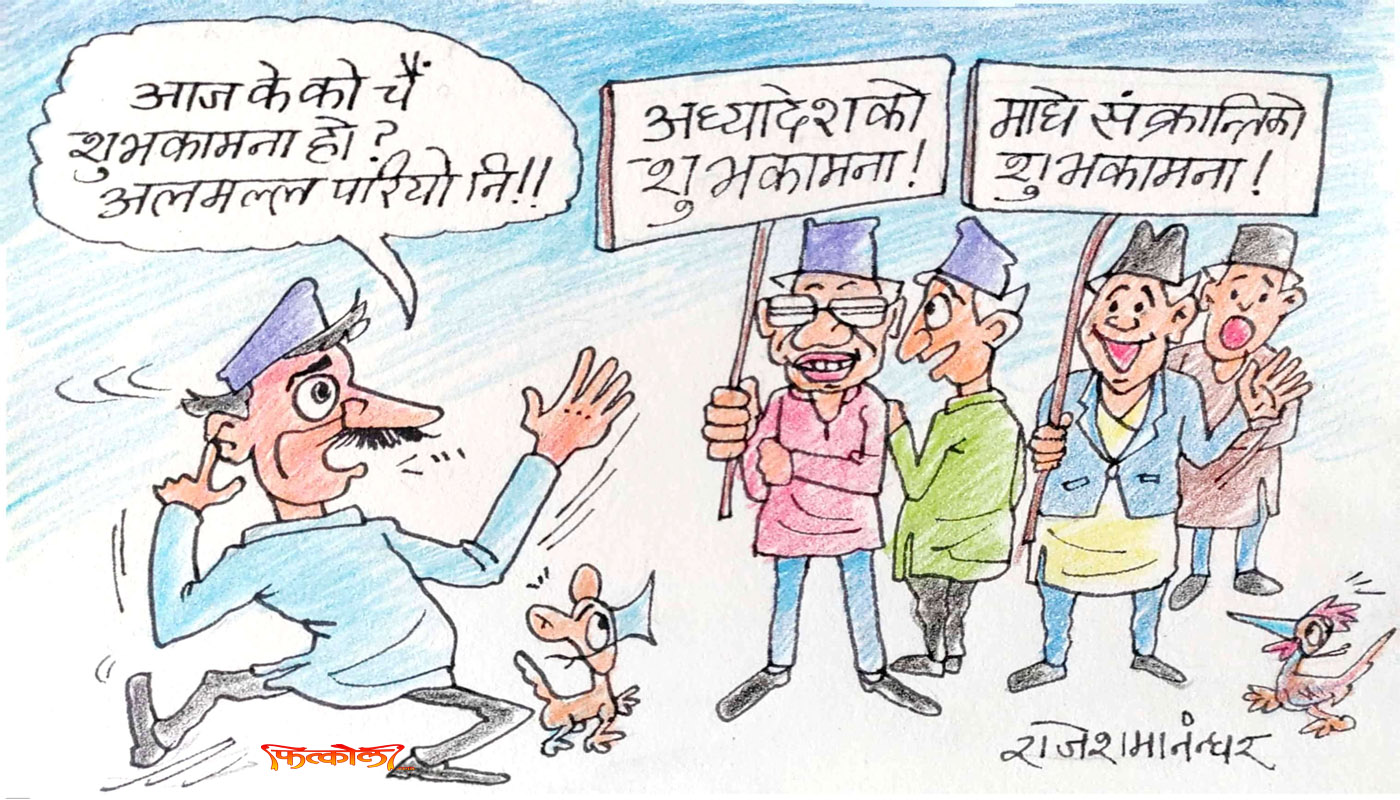 आज केको चैं
शुभकामना हो?
अलमल्ल पारियो नि!!
अध्यादेशको
शुभकामना!
माघे संक्रान्तिको
शुभकामना!
राजेशमानन्धर
फित्कौली